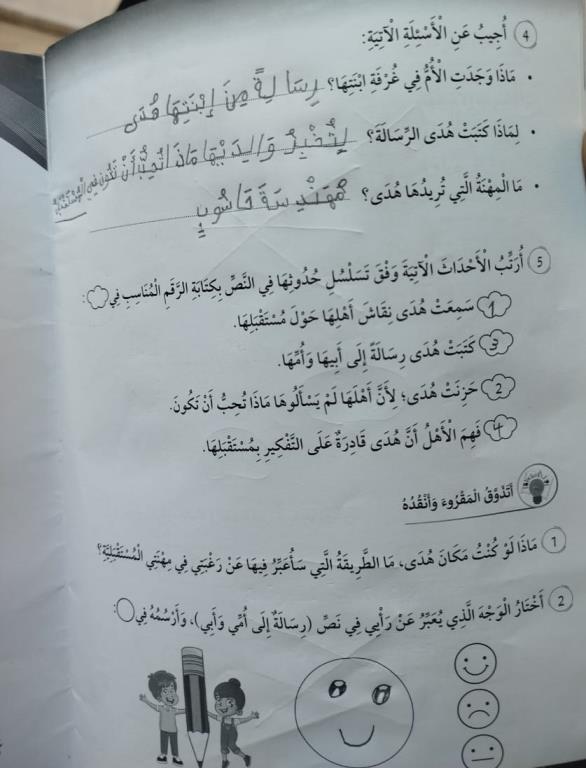 4 أُجِيبُ عَنِ الْأَسْئِلَةِ الْآتِيَةِ:
• مَاذَا وَجَدَتِ الْأُمُّ فِي غُرْفَةِ ابْنَتِهَا؟ رِسَالَةً مِنَ إِبْنَتِهَا هُدَى
• لِمَاذَا كَتَبَتْ هُدَى الرِّسَالَةَ؟ لِتُخْبِرُ وَالِدَيْهَا مَاذَا تُحِبُّ أَنْ تَكُونَ فِي الْمُسْتَقْبَلِ
• مَا الْمِهْنَةُ الَّتِي تُرِيدُهَا هُدَى؟ مُهَنْدِسَةَ حَاسُوبٍ
5 أُرَتِّبُ الْأَحْدَاثَ الْآتِيَةَ وَفْقَ تَسَلْسُلِ حُدُوثِهَا فِي النَّصِّ بِكِتَابَةِ الرَّقَمِ الْمُنَاسِبِ فِي :
1 سَمِعَتْ هُدَى نِقَاشَ أَهْلِهَا حَوْلَ مُسْتَقْبَلِهَا.
3 كَتَبَتْ هُدَى رِسَالَةً إِلَى أَبِيهَا وَأُمِّهَا.
2 حَزِنَتْ هُدَى؛ لِأَنَّ أَهْلَهَا لَمْ يَسْأَلُوهَا مَاذَا تُحِبُّ أَنْ تَكُونَ.
4 فَهِمَ الْأَهْلُ أَنَّ هُدَى قَادِرَةٌ عَلَى التَّفْكِيرِ بِمُسْتَقْبَلِهَا.
أَتَذَوَّقُ الْمَقْرُوءَ وَأَنْقُدُهُ
1 مَاذَا لَوْ كُنْتُ مَكَانَ هُدَى، مَا الطَّرِيقَةُ الَّتِي سَأُعَبِّرُ فِيهَا عَنْ رَغْبَتِي فِي مِهْنَتِي الْمُسْتَقْبَلِيَّةِ؟
2 أَخْتَارُ الْوَجْهَ الَّذِي يُعَبِّرُ عَنْ رَأْيِي فِي نَصِّ (رِسَالَةٌ إِلَى أُمِّي وَأَبِي)، وَأَرْسُمُهُ فِي :